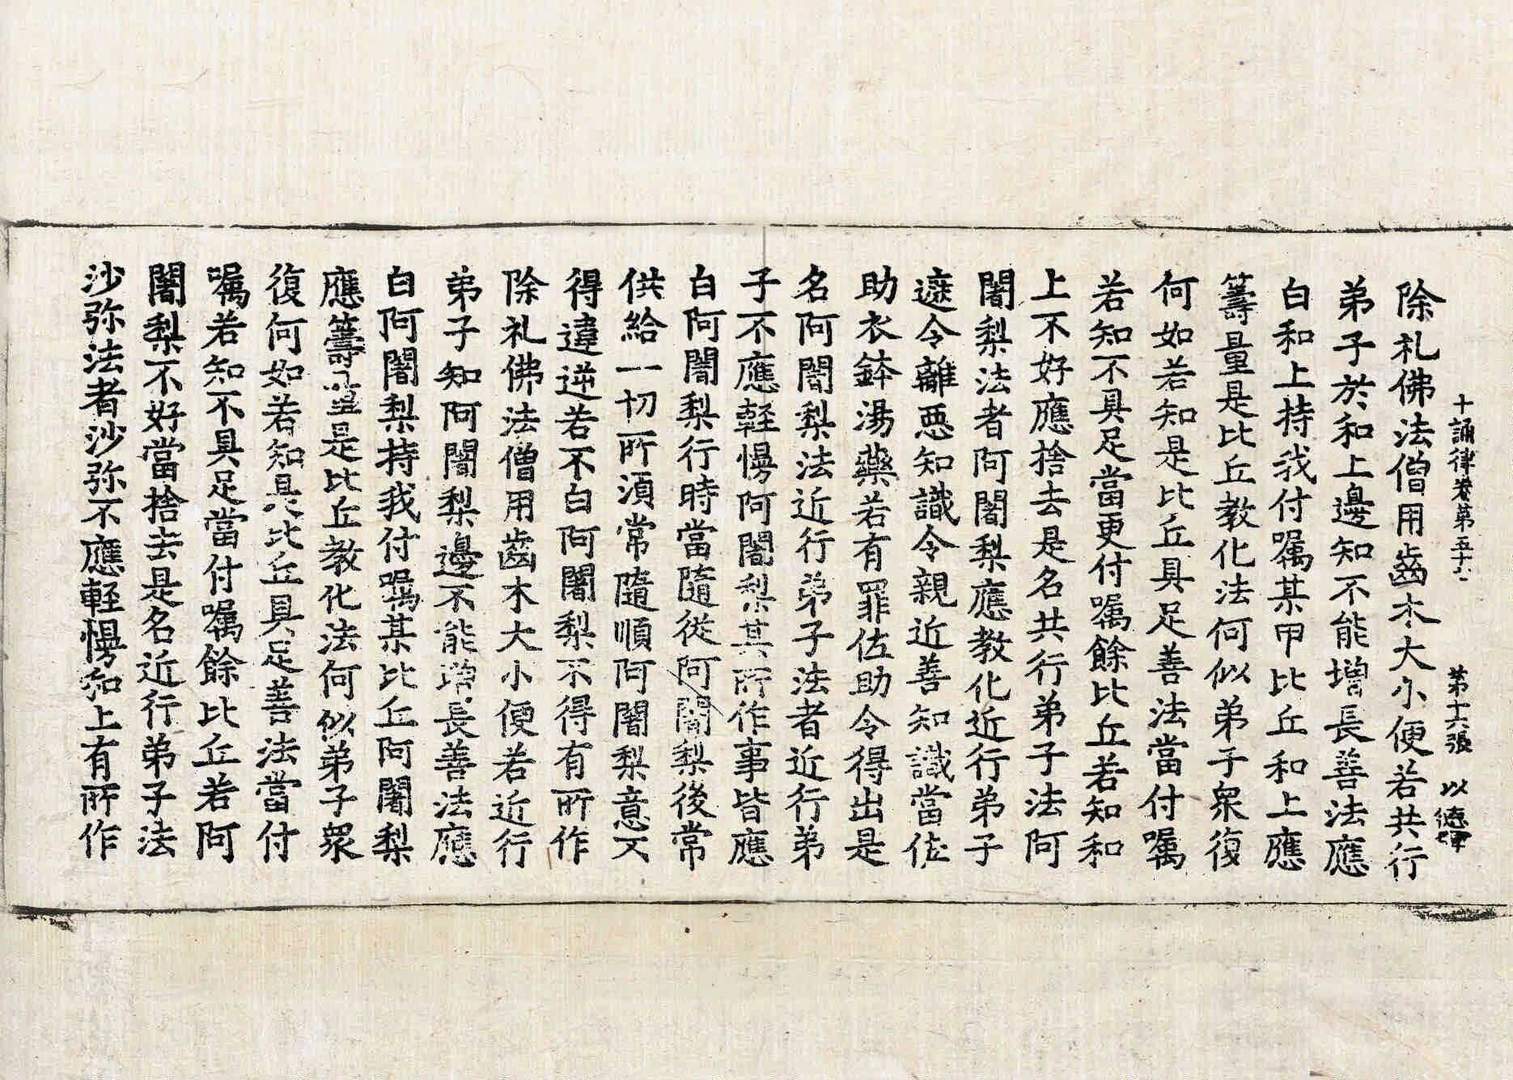 十誦律卷第五十六 第十六張 以
除礼佛法僧用齒木大小便若共行
弟子於和上邊知不能增長善法應
白和上持我付嘱某甲比丘和上應
籌量是比丘教化法何似弟子衆復
何如若知是比丘具足善法當付嘱
若知不具足當更付嘱餘比丘若知和
上不好應捨去是名共行弟子法阿
闍梨法者阿闍梨應教化近行弟子
遮令離惡知識令親近善知識當佐
助衣鉢湯藥若有罪佐助令得出是
名阿闍梨法近行弟子法者近行弟
子不應輕慢阿闍梨其所作事皆應
白阿闍梨行時當隨從阿闍梨後常
供給一切所須常隨順阿闍梨意不
得違逆若不白阿闍梨不得有所作
除礼佛法僧用齒木大小便若近行
弟子知阿闍梨邊不能增長善法應
白阿闍梨持我付嘱某比丘阿闍梨
應籌量是比丘教化法何似弟子衆
復何如若知是比丘具足善法當付
嘱若知不具足當付嘱餘比丘若阿
闍梨不好當捨去是名近行弟子法
沙弥法者沙弥不應輕慢和上有所作